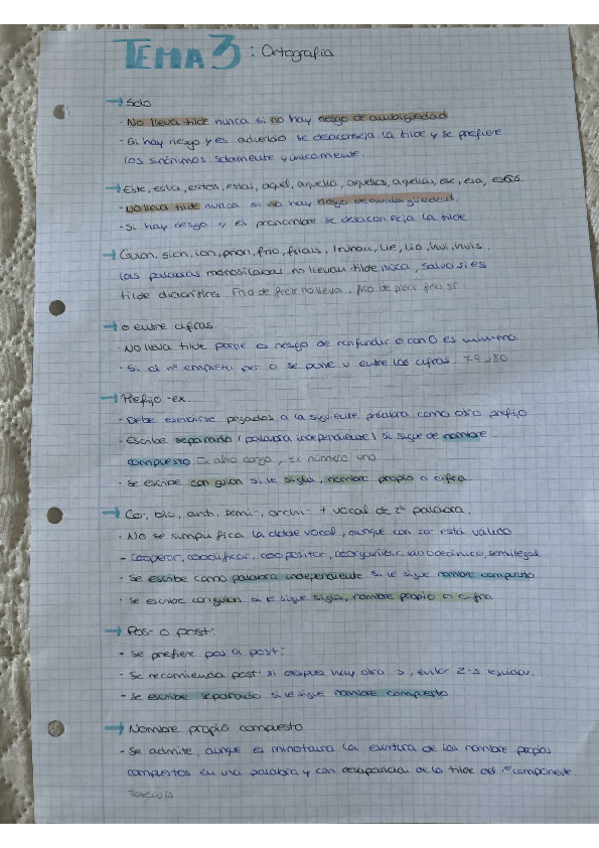 TEMA 3: Ortografía
→ Solo
- No lleva tilde nunca si no hay riesgo de ambigüedad
- Si hay riesgo y es adverbio se desaconseja la tilde y se prefiere
los sinónimos solamente y únicamente.
→ Este, esta, estos, estas, aquel, aquella, aquellos, aquellas, ese, esa, esos.
- No lleva tilde nunca si no hay riesgo de ambigüedad.
- Si hay riesgo y es pronombre se desaconseja la tilde
→ Guion, sion, ion, prion, frio, friais, truhan, lie, lio, hui, huis.
Las palabras monosílabas no llevan tilde nunca, salvo si es
tilde diacrítica. Frio de freír no lleva, frío de pasar frío sí.
→ o entre cifras
- No lleva tilde porque es riesgo de confundir o con 0 es mínimo
- Si el nº empieza por o se pone u entre las cifras. 79 u 80
→ Prefijo -ex.
- Debe escribirse pegados a la siguiente palabra como otro prefijo
- Escribe separado (palabra independiente) si sigue de nombre
compuesto. Ex alto cargo, ex número uno
- Se escribe con guion si le sigla, nombre propio o cifra
→ Co-, bio, anti, semi-, archi- + vocal de 2ª palabra.
- No se simplifica la doble vocal, aunque con co- está válido
- Cooperar, coocupar, coopositor, coorganizar, semilegal
- Se escribe como palabra independiente si le sigue nombre compuesto
- Se escribe con guion si le sigue sigla, nombre propio o cifra
→ Pos- o post:
- Se prefiere pos a post:
- Se recomienda post- si después hay otra s, evitar 2-s seguidas.
- Se escribe separado si le sigue nombre compuesto
→ Nombre propio compuesto
- Se admite, aunque es minoritaria la escritura de los nombre propios
compuestos en una palabra y con desaparición de la tilde del 1er componente.
Joseluis